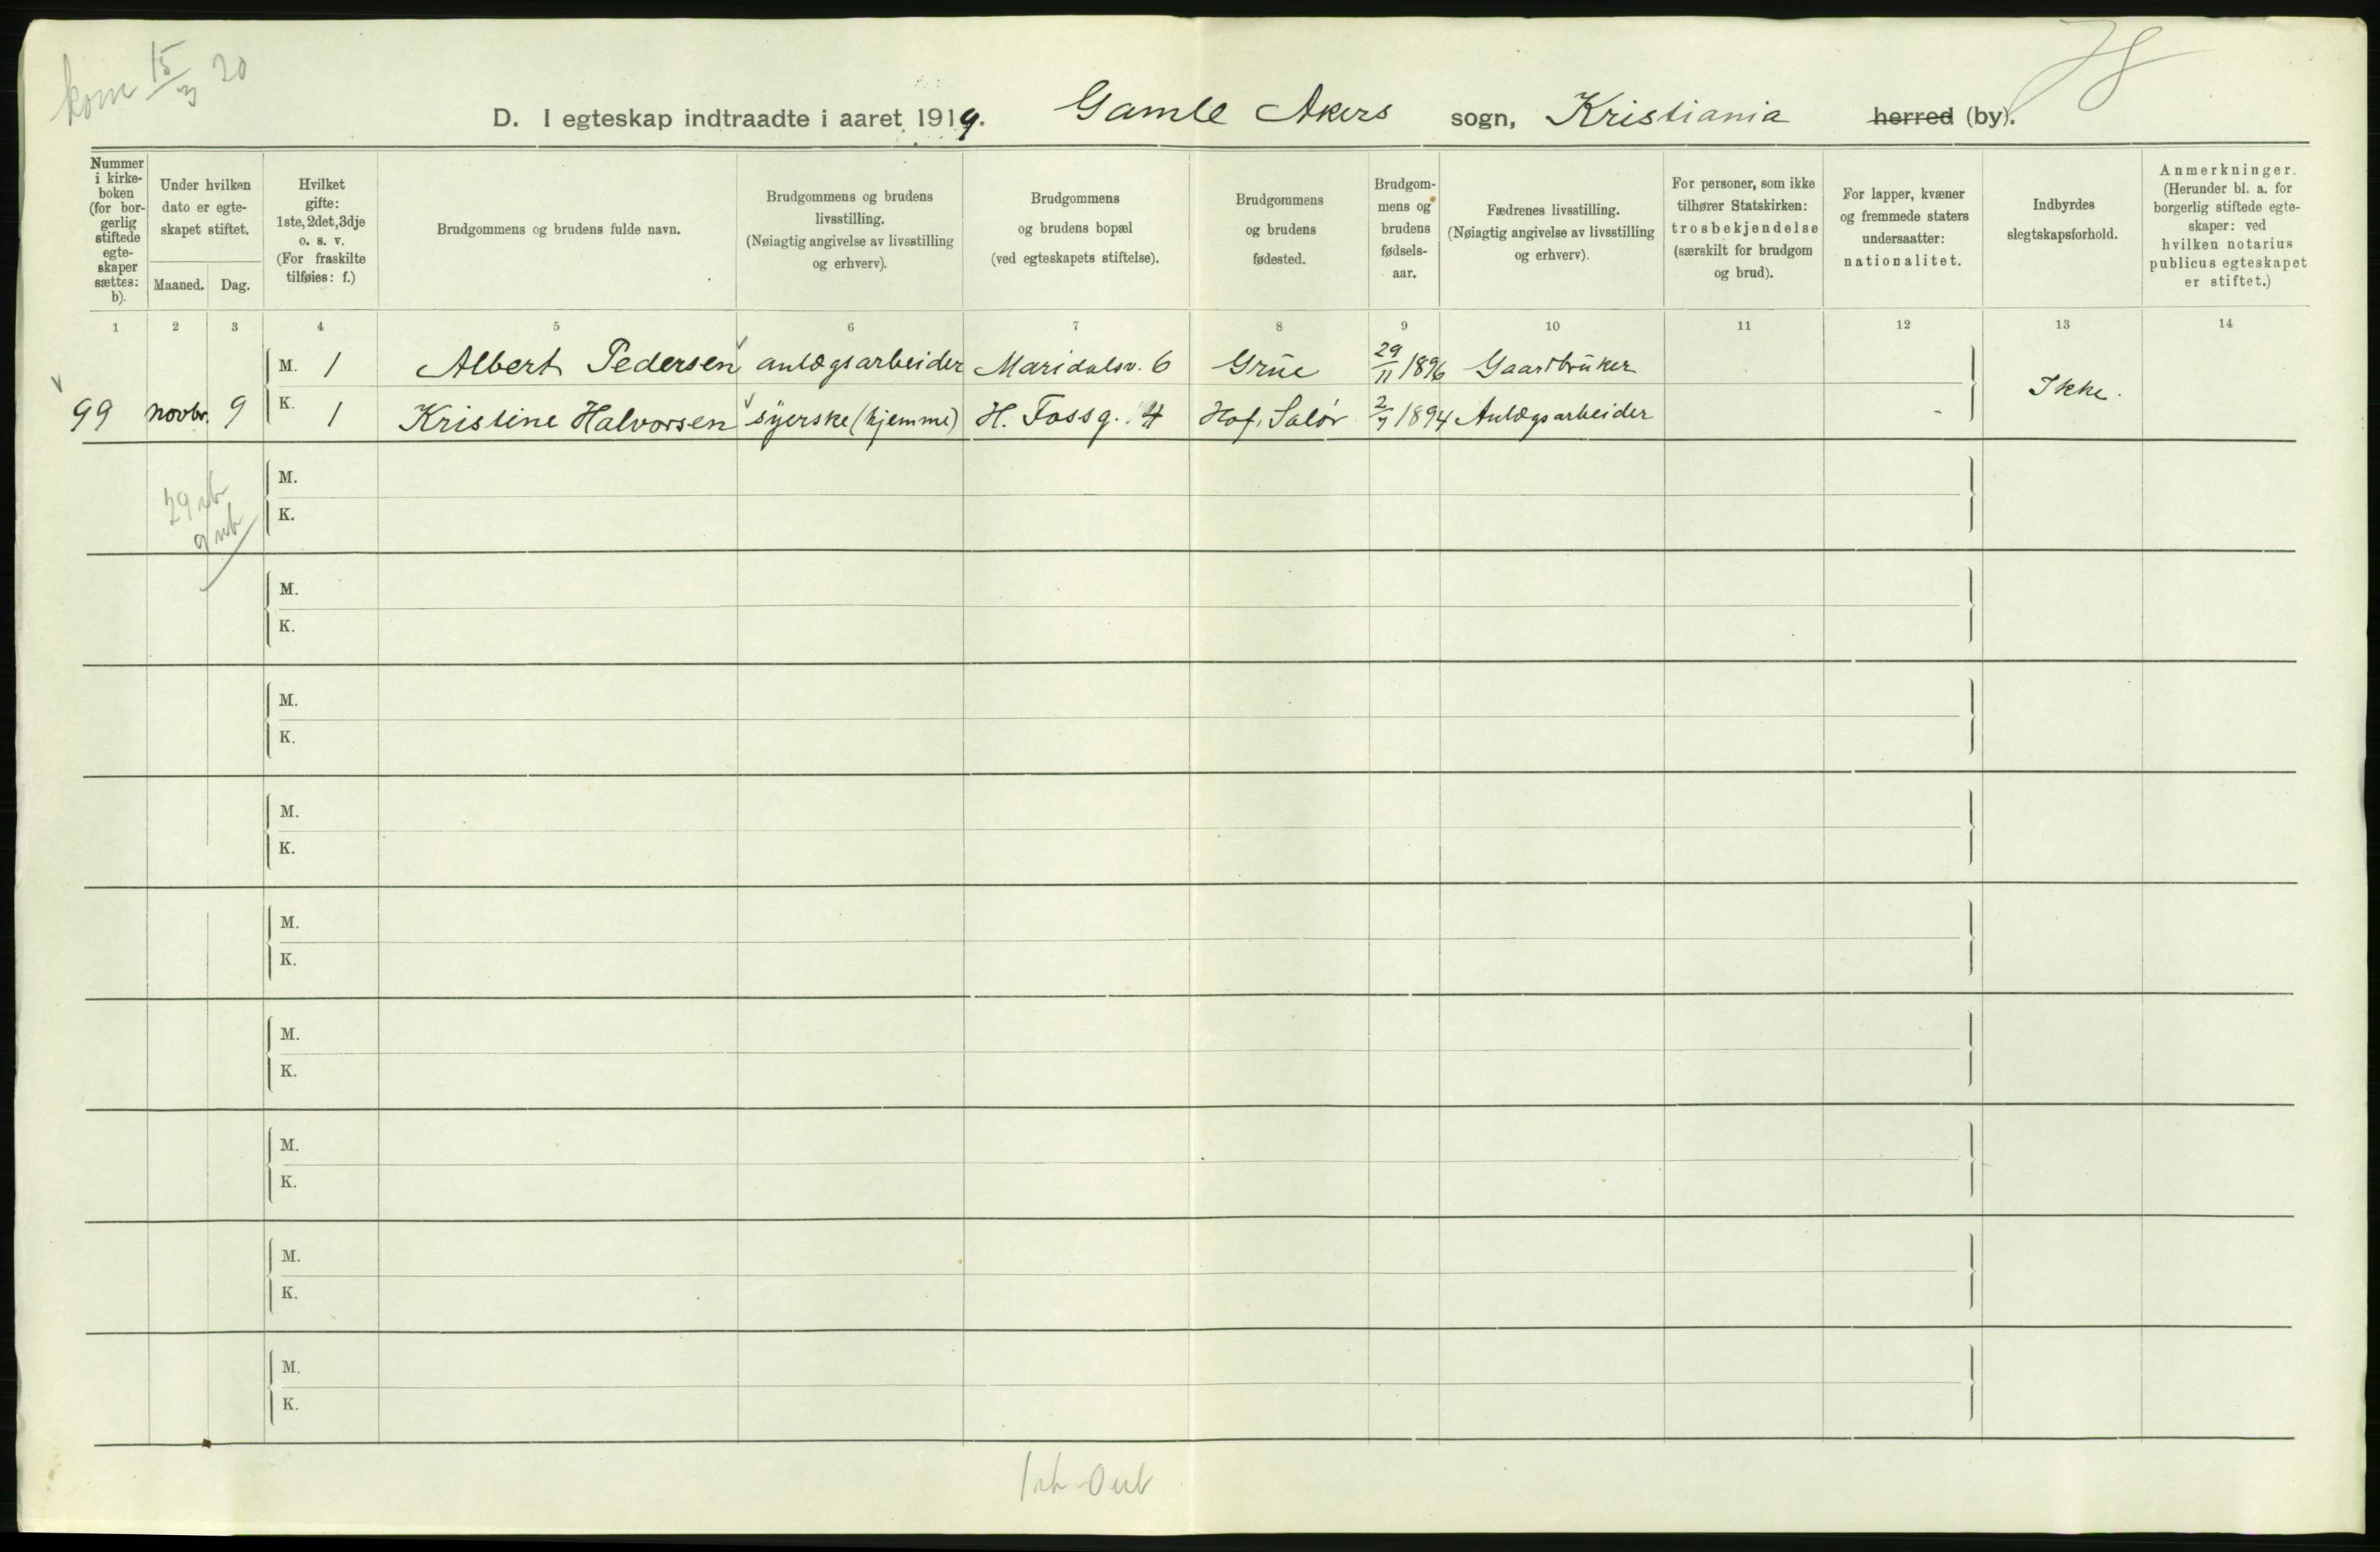 kom 15/3 20
D. I egteskap indtraadte i aaret 1919. Gamle Akers sogn, Kristiania herred (by).
Nummer i kirke-boken (for bor-gerlig stiftede egte-skaper sættes: b).
Under hvilken dato er egte-skapet stiftet.
Maaned. Dag.
Hvilket gifte: 1ste, 2det, 3dje o. s. v. (For fraskilte tilføies: f.)
Brudgommens og brudens fulde navn.
Brudgommens og brudens livsstilling. (Nøiagtig angivelse av livsstilling og erhverv).
Brudgommens og brudens bopæl (ved egteskapets stiftelse).
Brudgommens og brudens fødested.
Brudgom-mens og brudens fødsels-aar.
Fædrenes livsstilling. (Nøiagtig angivelse av livsstilling og erhverv).
For personer, som ikke tilhører Statskirken: trosbekjendelse (særskilt for brudgom og brud).
For lapper, kvæner og fremmede staters undersaatter: nationalitet.
Indbyrdes slegtskapsforhold.
Anmerkninger. (Herunder bl. a. for borgerlig stiftede egte-skaper: ved hvilken notarius publicus egteskapet er stiftet.)
1 2 3 4 5 6 7 8 9 10 11 12 13 14
M. 1 Albert Pedersen anlægsarbeider Maridalsv. 6 Grue 29/11 1896 Gaardbruker
99 novbr. 9 K. 1 Kristine Halvorsen syerske (hjemme) H. Fossg. 4 Hof, Solør 2/7 1894 Anlægsarbeider - Ikke.
M.
K.
M.
K.
M.
K.
M.
K.
M.
K.
M.
K.
M.
K.
M.
K.
M.
K.